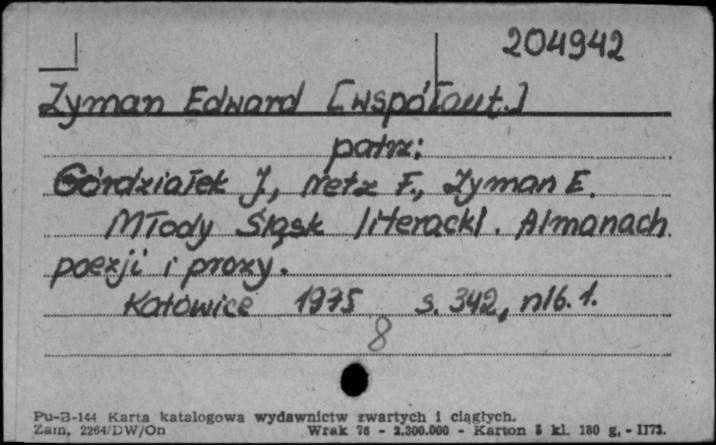 204942
Zyman Edward [współaut.]
patrz:
Górdziałek J., Netz F., Zyman E.
Młody Śląsk literacki. Almanach
poezji i prozy.
Katowice 1975 s. 342, nlb. 1.
8
Pu-B-144 Karta katalogowa wydawnictw zwartych i ciągłych.
Zam. 2264/DW/On Wrak 76 - 2.300.000 - Karton 5 kl. 180 g. - II73.